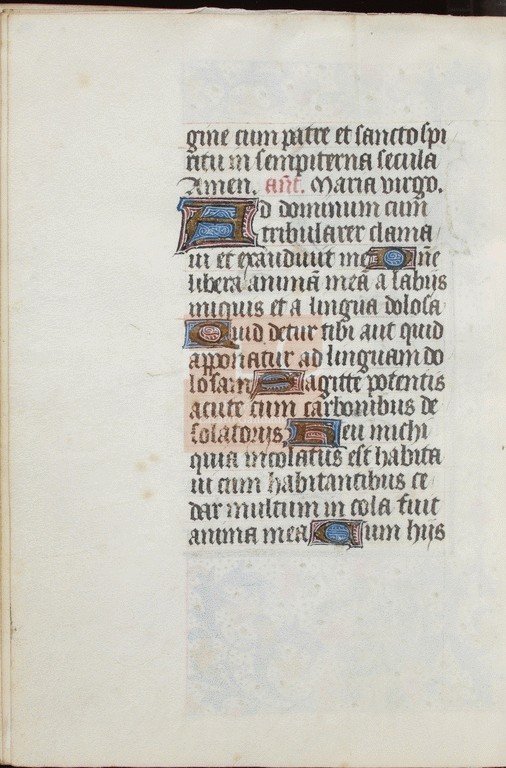 gine cum patre et sancto spi
ritu in sempiterna secula
Amen. ant. Maria virgo.
Ad dominum cum
tribularer clama
ui et exaudiuit me Dne
libera animã meã a labiis
iniquis et a lingua dolosa
Quid detur tibi aut quid
apponatur ad linguam do
losam Sagitte potentis
acute cum carbonibus de
solatoriis Heu michi
quia incolatus est habita
ui cum habitantibus ce
dar multum in cola fuit
anima mea Cum hiis